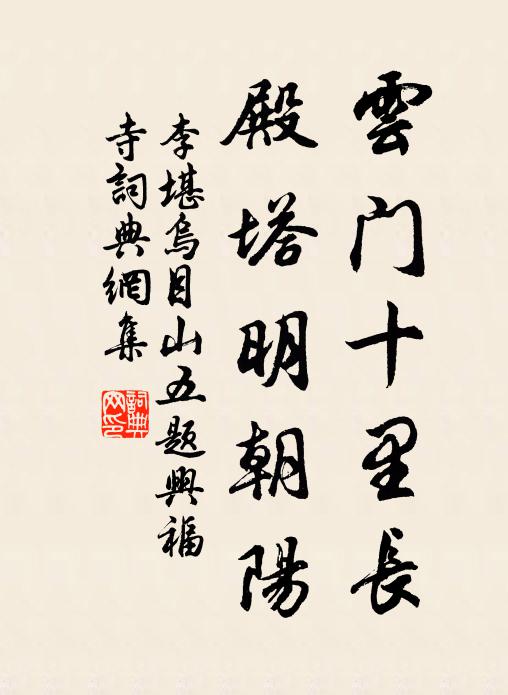 雲门十里長
殿塔明朝陽
李堪烏目山五题興福
寺詞典網集
詞典
網印